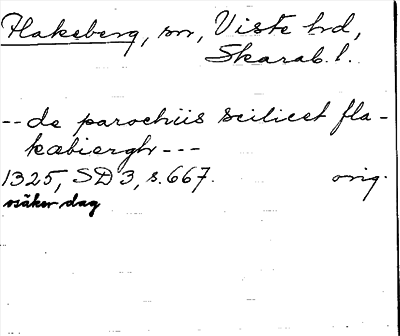 Flakeberg, sn, Viste hd,
Skarab. l.
-- de parochiis scilicet fla-
kæbierghr ---
1325, SD 3, s. 667. orig.
osäker dag